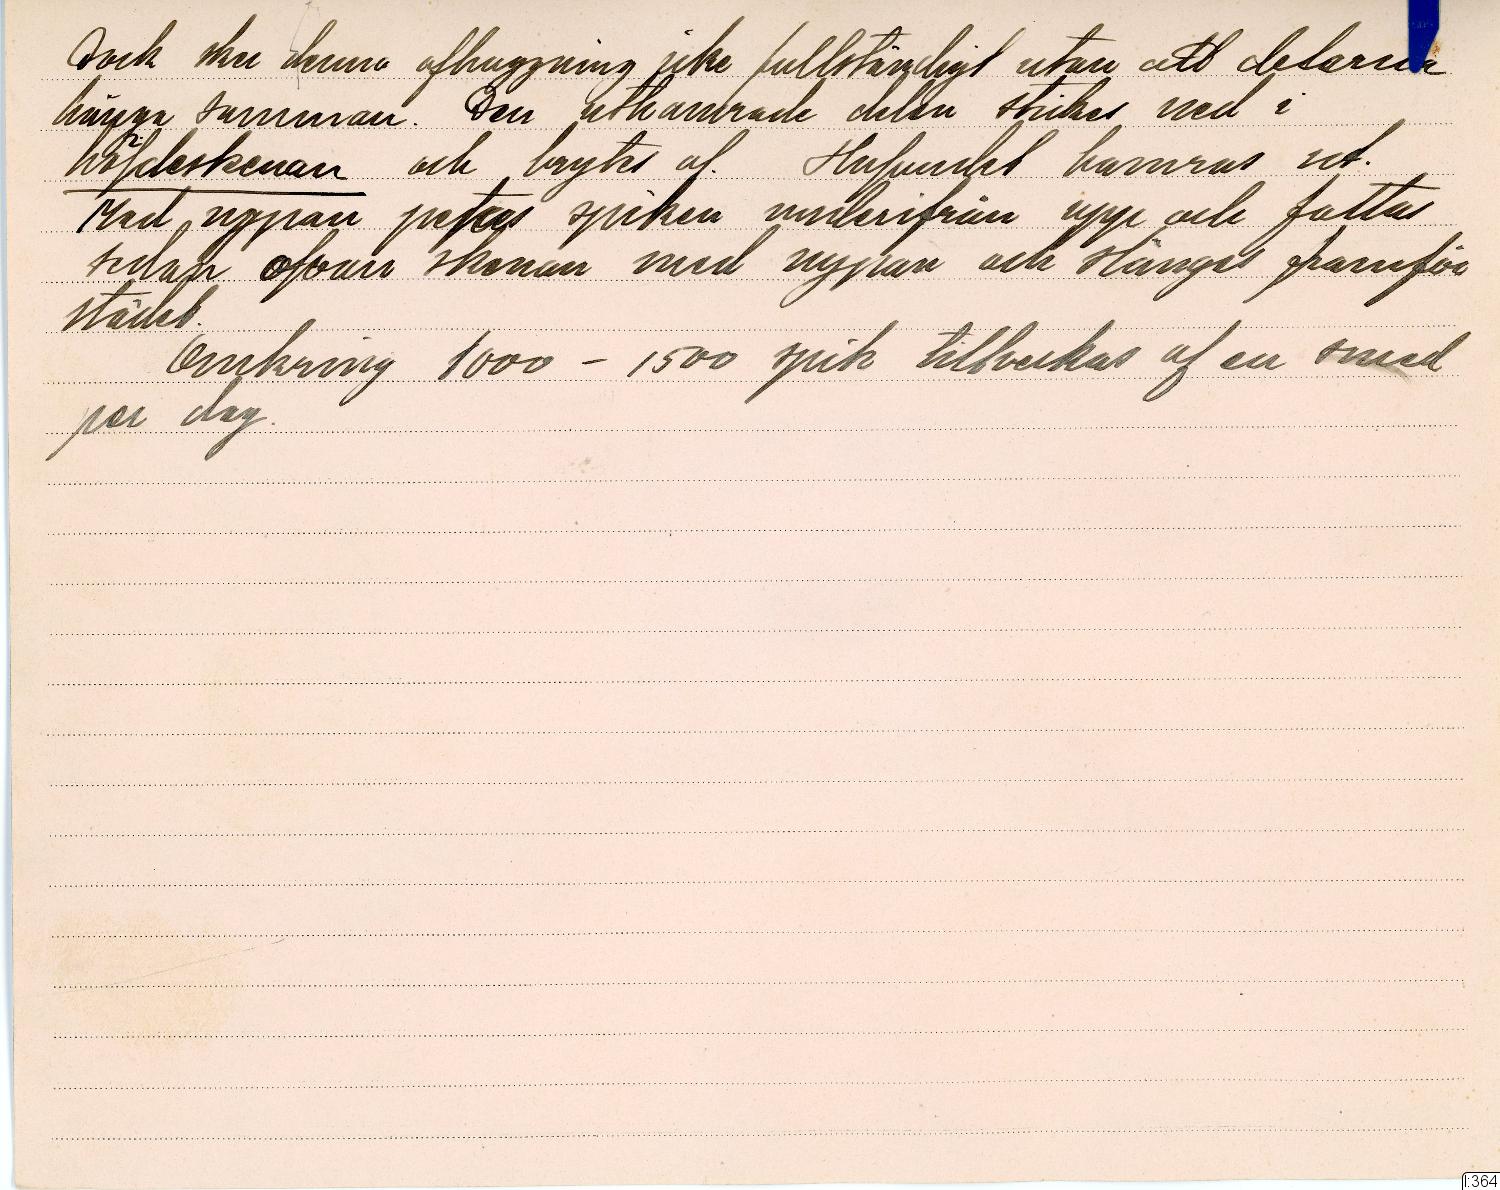 Dock sker denna afhuggning icke fullständigt utan att delarna
hänga samman. Den uthamrade delen stickes ned i
höfdeskenan och brytes af. Hufvudet hamras ut.
Med nypan petas spiken underifrån upp och fattas
sedan ofvan skenan med nypan och slänges framför
städet.
Omkring 1000 - 1500 spik tillverkas af en smed
per dag.
I:364